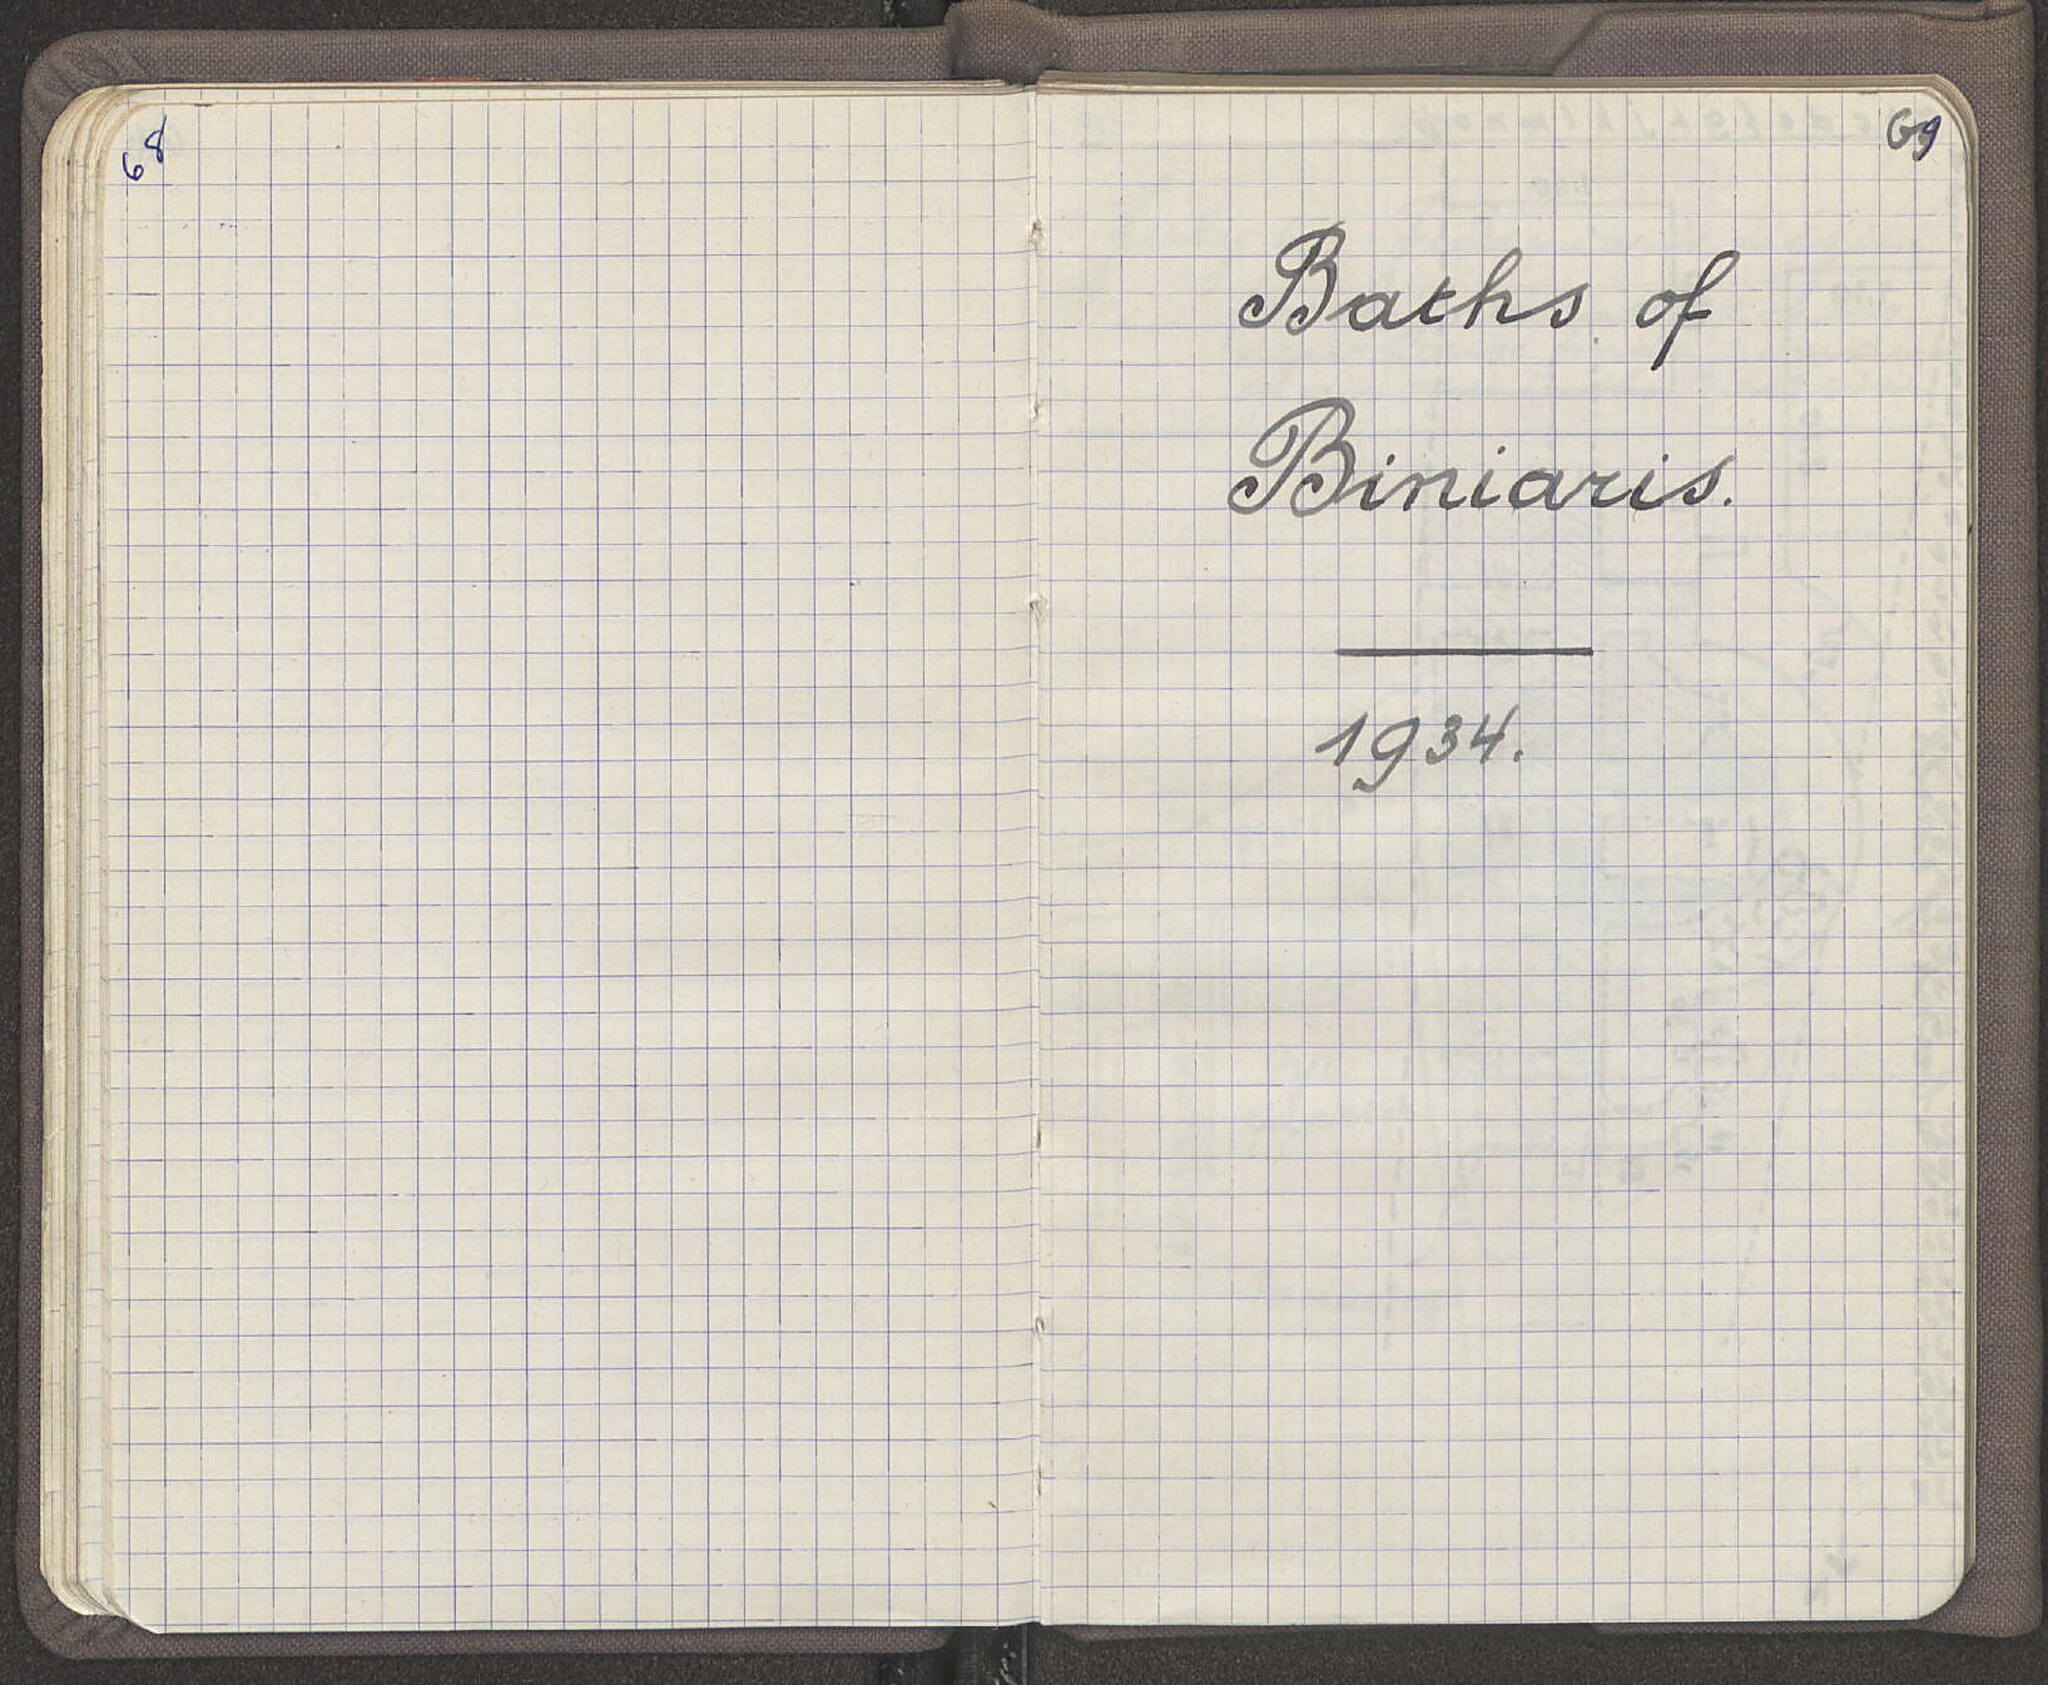 68
69
Baths of
Biniaris.
1934.